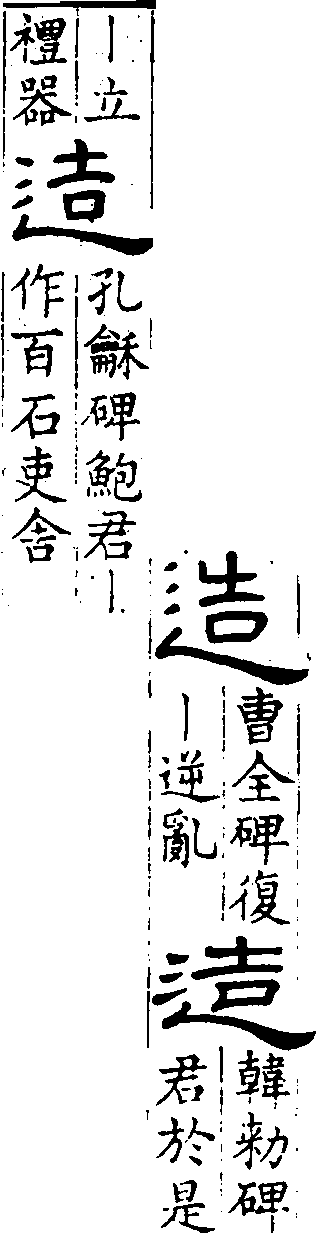 造
曹全碑復
｜逆亂
造
韓勑碑
君於是
｜立
禮器
造
孔龢碑鮑君｜
作百石吏舍